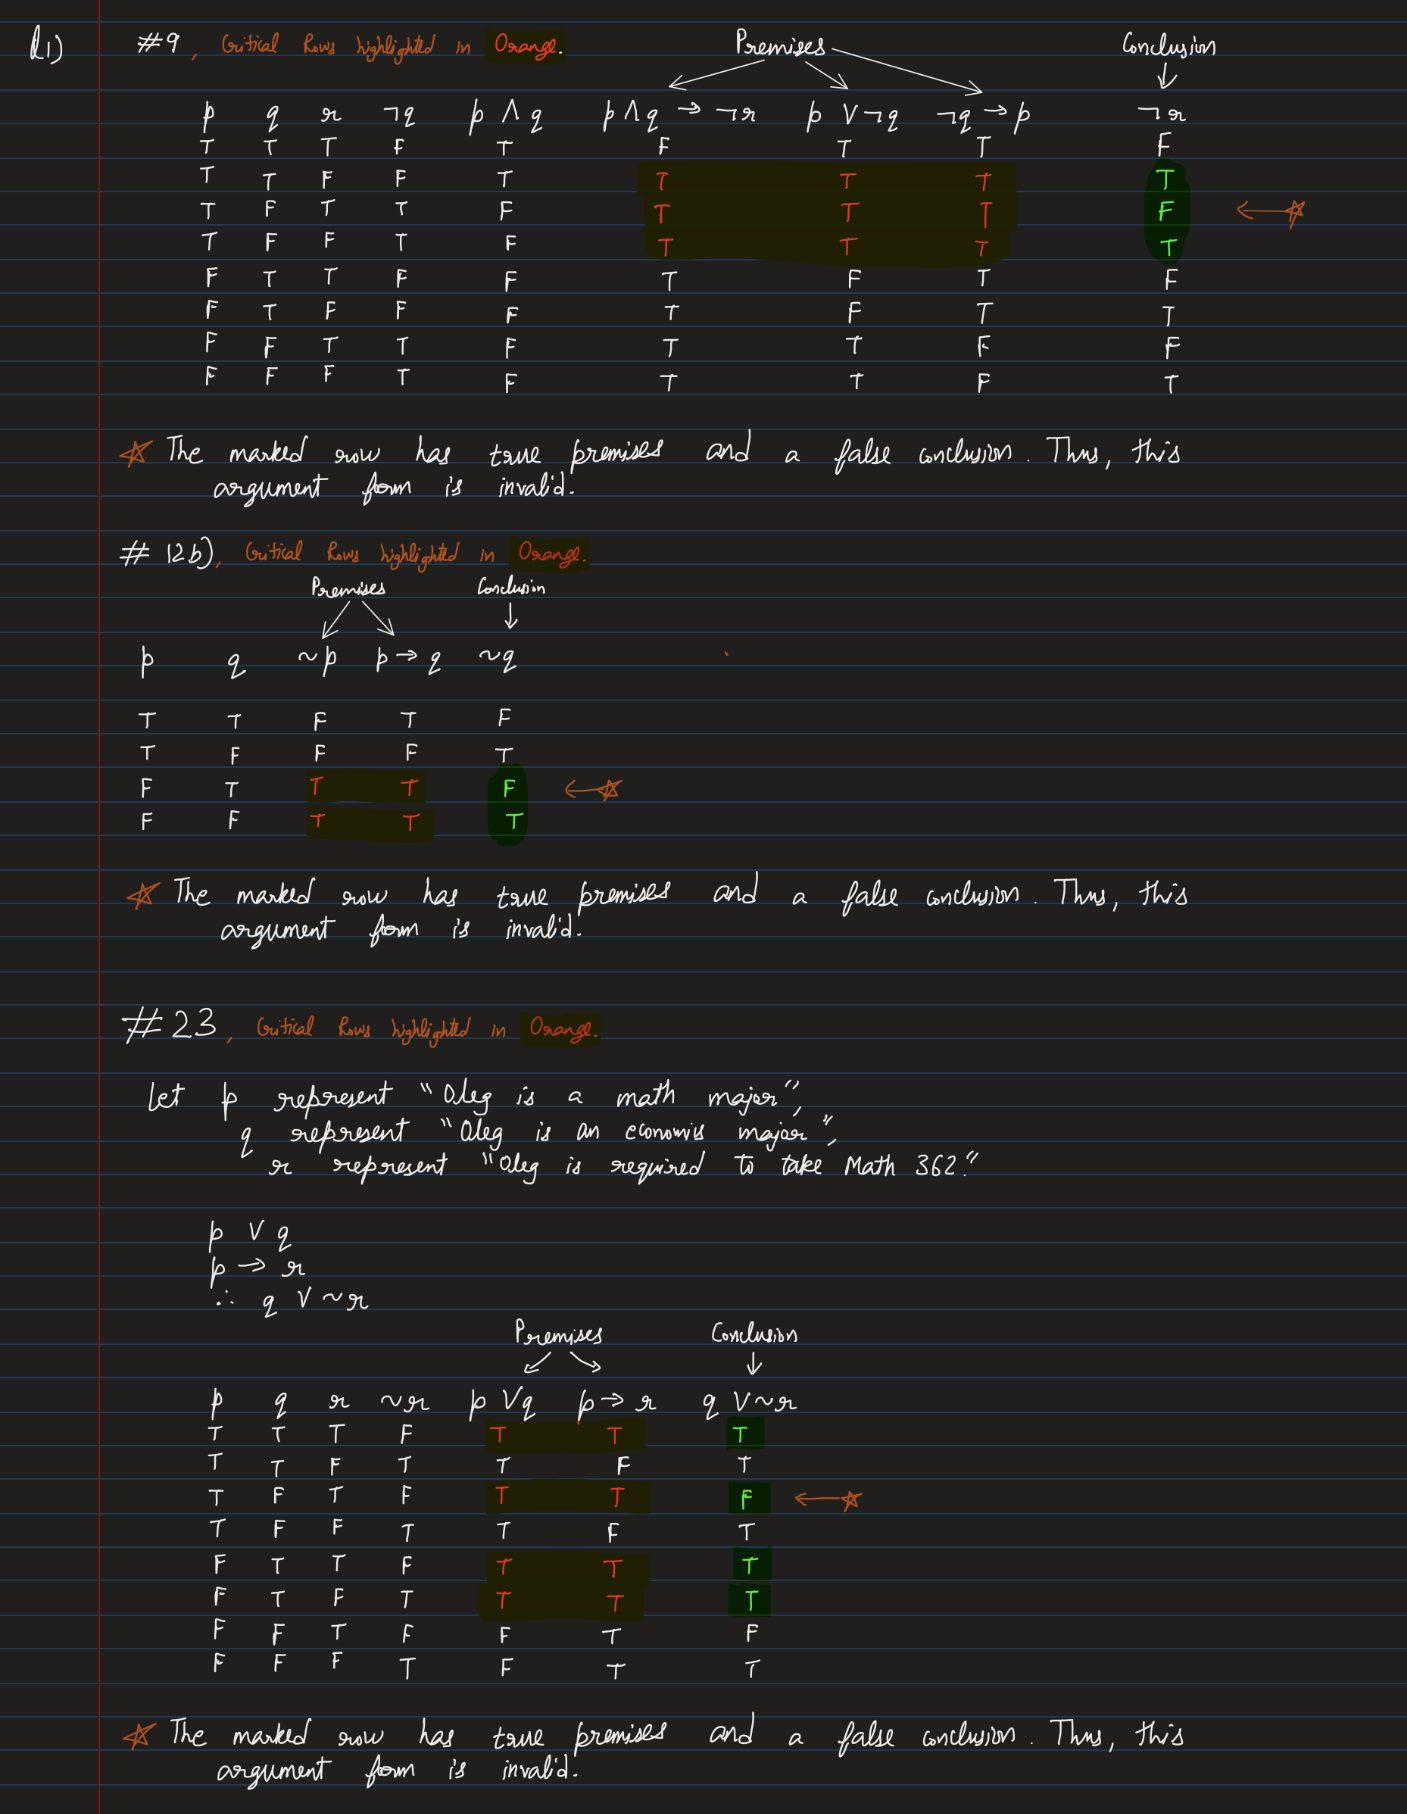 Q1) #9, Critical Rows highlighted in Orange.
Premises Conclusion
p q r ¬q p ∧ q p ∧ q → ¬r p ∨ ¬q ¬q → p ¬r
T T T F T F T T F
T T F F T T T T T
T F T T F T T T F
T F F T F T T T T
F T T F F T F T F
F T F F F T F T T
F F T T F T T F F
F F F T F T T F T
☆ The marked row has true premises and a false conclusion. Thus, this
argument form is invalid.
# 12b), Critical Rows highlighted in Orange.
Premises Conclusion
p q ~p p → q ~q
T T F T F
T F F F T
F T T T F
F F T T T
☆ The marked row has true premises and a false conclusion. Thus, this
argument form is invalid.
#23, Critical Rows highlighted in Orange.
Let p represent "Oleg is a math major",
q represent "Oleg is an economis major",
r represent "Oleg is required to take Math 362."
p ∨ q
p → r
∴ q ∨ ~r
Premises Conclusion
p q r ~r p ∨ q p → r q ∨ ~r
T T T F T T T
T T F T T F T
T F T F T T F
T F F T T F T
F T T F T T T
F T F T T T T
F F T F F T F
F F F T F T T
☆ The marked row has true premises and a false conclusion. Thus, this
argument form is invalid.